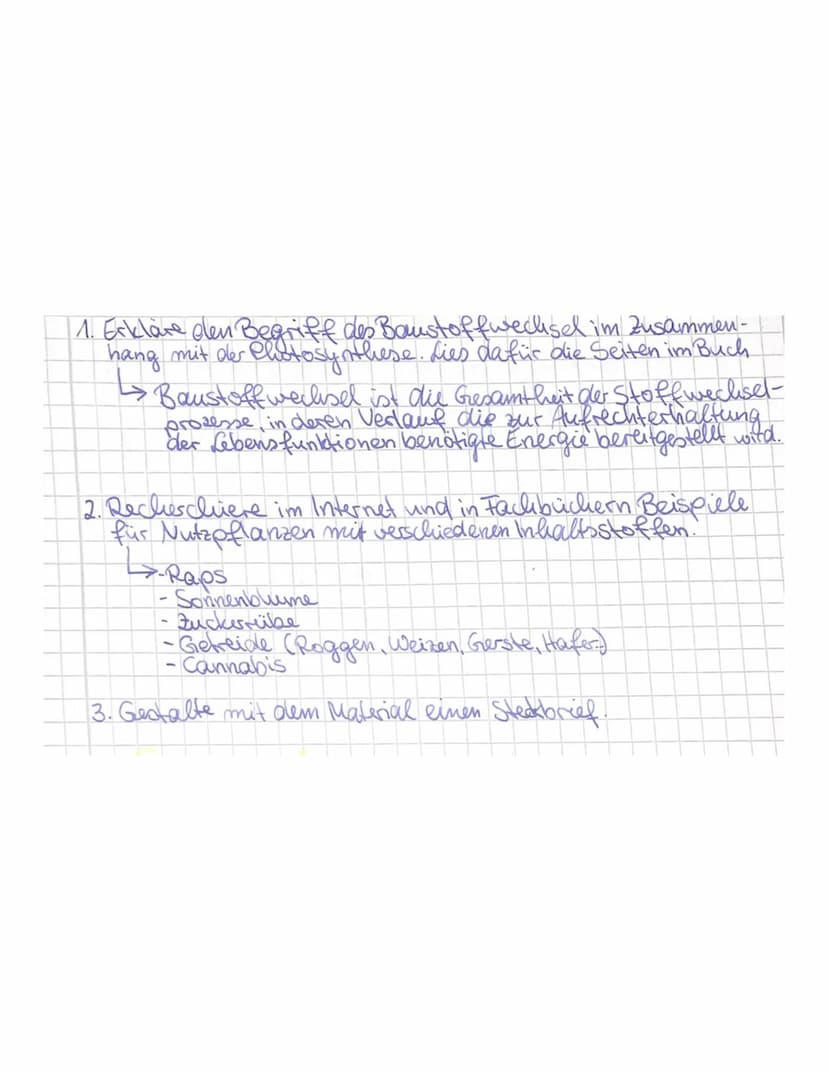 1. Erkläre den Begriff des Baustoffwechsel im Zusammen-
hang mit der Photosynthese. Lies dafür die Seiten im Buch
↳ Baustoffwechsel ist die Gesamtheit der Stoffwechsel-
prozesse, in deren Verlauf die zur Aufrechterhaltung
der Lebensfunktionen benötigte Energie bereitgestellt wird.
2. Recherchiere im Internet und in Fachbüchern Beispiele
für Nutzpflanzen mit verschiedenen Inhaltsstoffen.
↳ - Raps
- Sonnenblume
- Zuckerrübe
- Getreide (Roggen, Weizen, Gerste, Hafer)
- Cannabis
3. Gestalte mit dem Material einen Steckbrief.